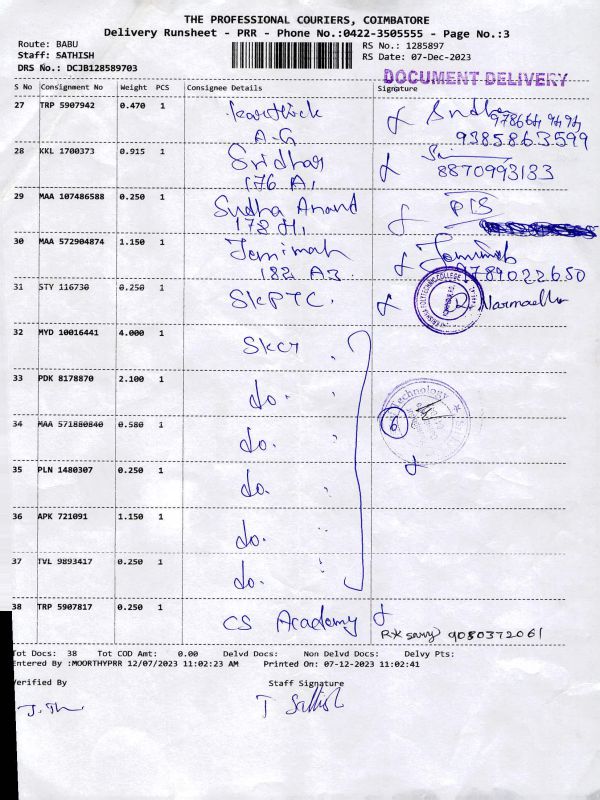 THE PROFESSIONAL COURIERS, COIMBATORE
Delivery Runsheet - PRR - Phone No.:0422-3505555 - Page No.:3
Route: BABU
Staff: SATHISH
DRS No.: DCJB128589703
RS No.: 1285897
RS Date: 07-Dec-2023
DOCUMENT DELIVERY
S No Consignment No Weight PCS Consignee Details Signature
27 TRP 5907942 0.470 1 Karthick
A-G
9385863599
28 KKL 1700373 0.915 1 Sridhar
176 A1
8870993183
29 MAA 107486588 0.250 1 Sudha Anand
178 H1
30 MAA 572904874 1.150 1 Jemimah
182 A3
9789022650
31 STY 116730 0.250 1 SKPTC.
32 MYD 10016441 4.000 1 SKCT
33 PDK 8178870 2.100 1 do.
34 MAA 571880840 0.580 1 do.
6
Technology
35 PLN 1480307 0.250 1 do.
36 APK 721091 1.150 1 do.
37 TVL 9893417 0.250 1 do.
38 TRP 5907817 0.250 1 CS Academy
9080372061
Tot Docs: 38 Tot COD Amt: 0.00 Delvd Docs: Non Delvd Docs: Delvy Pts:
Entered By :MOORTHYPRR 12/07/2023 11:02:23 AM Printed On: 07-12-2023 11:02:41
Verified By Staff Signature
T Sathish